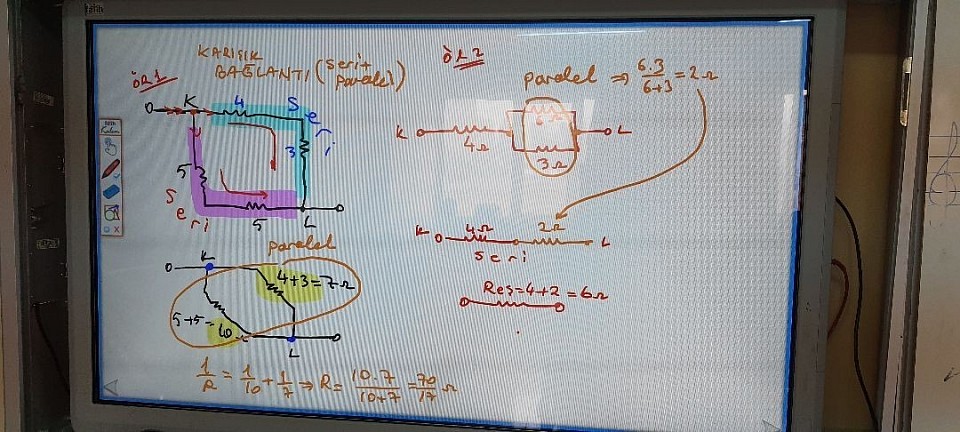 KARIŞIK
BAĞLANTI (seri+
paralel)
ÖR1
K
4
Seri
3
5
Seri
5
L
paralel
K
4+3=7Ω
5+5=10
L
1/R = 1/10 + 1/7 → R = 10.7/10+7 = 70/17 Ω
ÖR2
paralel ⇒ 6.3/6+3 = 2Ω
K
4Ω
6Ω
3Ω
L
K
4Ω
2Ω
L
seri
Reş=4+2=6Ω